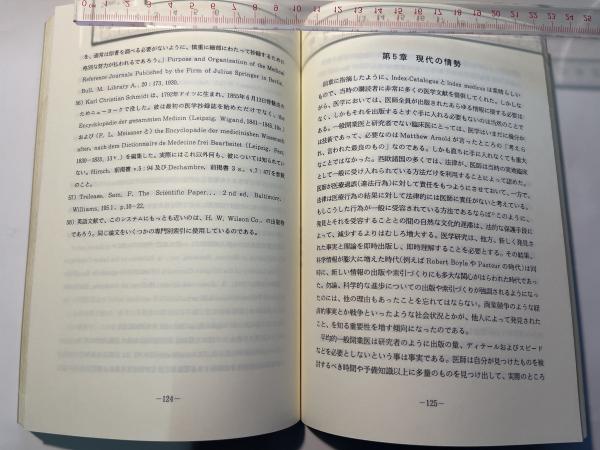 を、通常は原書を調べる必要がないように、慎重に細部にわたって抄録するために
格別な努力が払われるであろう。」 Purpose and Organisation of the Medical
Reference Journals Published by the Firm of Julius Springer in Berlin.
Bull. M. Library A., 20: 173, 1930.
56) Karl Christian Schmidt は、1792年ドイツに生まれ、1855年6月13日脊髄炎の
ためニューヨークで没した。彼は最初の医学抄録誌を始めただけでなく、the
Encyclopädie der gesammten Medicin (Leipzig, Wigand, 1841-1843, 10v.)
および (F. L. Meissner と) the Encyclopädie der medicinischen Wissenschaften,
nach dem Dictionnaire de Médecine frei Bearbeitet (Leipzig, Fest,
1830-1833, 13v.) を編集した。実際にはこれ以外何も、彼については知られていな
い。Hirsch, 前掲書 v.5: 94 及び Dechambre, 前掲書 3 s., v.7: 471 を参照
のこと。
57) Trelease, Sam, F. The Scientific Paper... 2nd ed, Baltimore,
Williams, 1951. p.18-22.
58) 英語文献で、このシステムにもっとも近いのは、H. W. Wilson Co., の出版物
であろう。同じ論文をいくつかの専門別索引に使用しているのである。
—124—
第5章 現代の情勢
前章に指摘したように、Index-Catalogue と Index medicus は素晴らしい
もので、当時の購読者に非常に多くの医学文献を提供してくれた。しかしな
がら、医学においては、医師全員が出版されたあらゆる情報に接する必要は
なく、しかもそれを出版するとすぐ手に入れる必要もないのは当然のことで
ある。一般開業医と研究者でない臨床医にとっては、医学はいまだに幾分か
は技術であって、必要なのは Matthew Arnold が言ったところの「考えら
れ、言われた最良のもの」なのである。しかも直ちに手に入れなくても重大
なことではなかった。西欧諸国の多くでは、法律が、医師は当時の実地臨床
として一般に受け入れられている方法だけを利用することによって認めた。
医師が医療過誤(違法行為)に対して責任をもつようにさせておいて、一方で、
法律は医療行為の結果に対して法律的には医師に責任がないと考えている。
もしこうした行為が一般に受容されている方法であるならば¹⁾このように、
発見とそれを受容することとの間の自然な文化的遅滞は、法的な保護手段に
よって、減少するよりはむしろ増大する。医学研究は、他方、新しく発見さ
れた事実と理論を即時出版し、即時理解することを必要とする。その結果、
科学情報が膨大に増えた時代(例えば Robert Boyle や Pasteur の時代)は同
時に、新しい情報の出版や索引づくりにも多大な関心がはらわれた時代であっ
た。勿論、科学的な進歩についての出版や索引づくりが強調されるようになっ
たのには、他の理由もあったことを忘れてはならない。商業競争のような経
済的事実とか戦争といったような社会状況とか、他人によって発見された
こと、を知る重要性を増す傾向になったのである。
平均的一般開業医は研究者のように出版の量、ディテールおよびスピード
などを必要としないという事は事実である。医師は自分が見つけたものを検
討するべき時間や予備知識以上に多量のものを見つけ出して、実際のところ
—125—